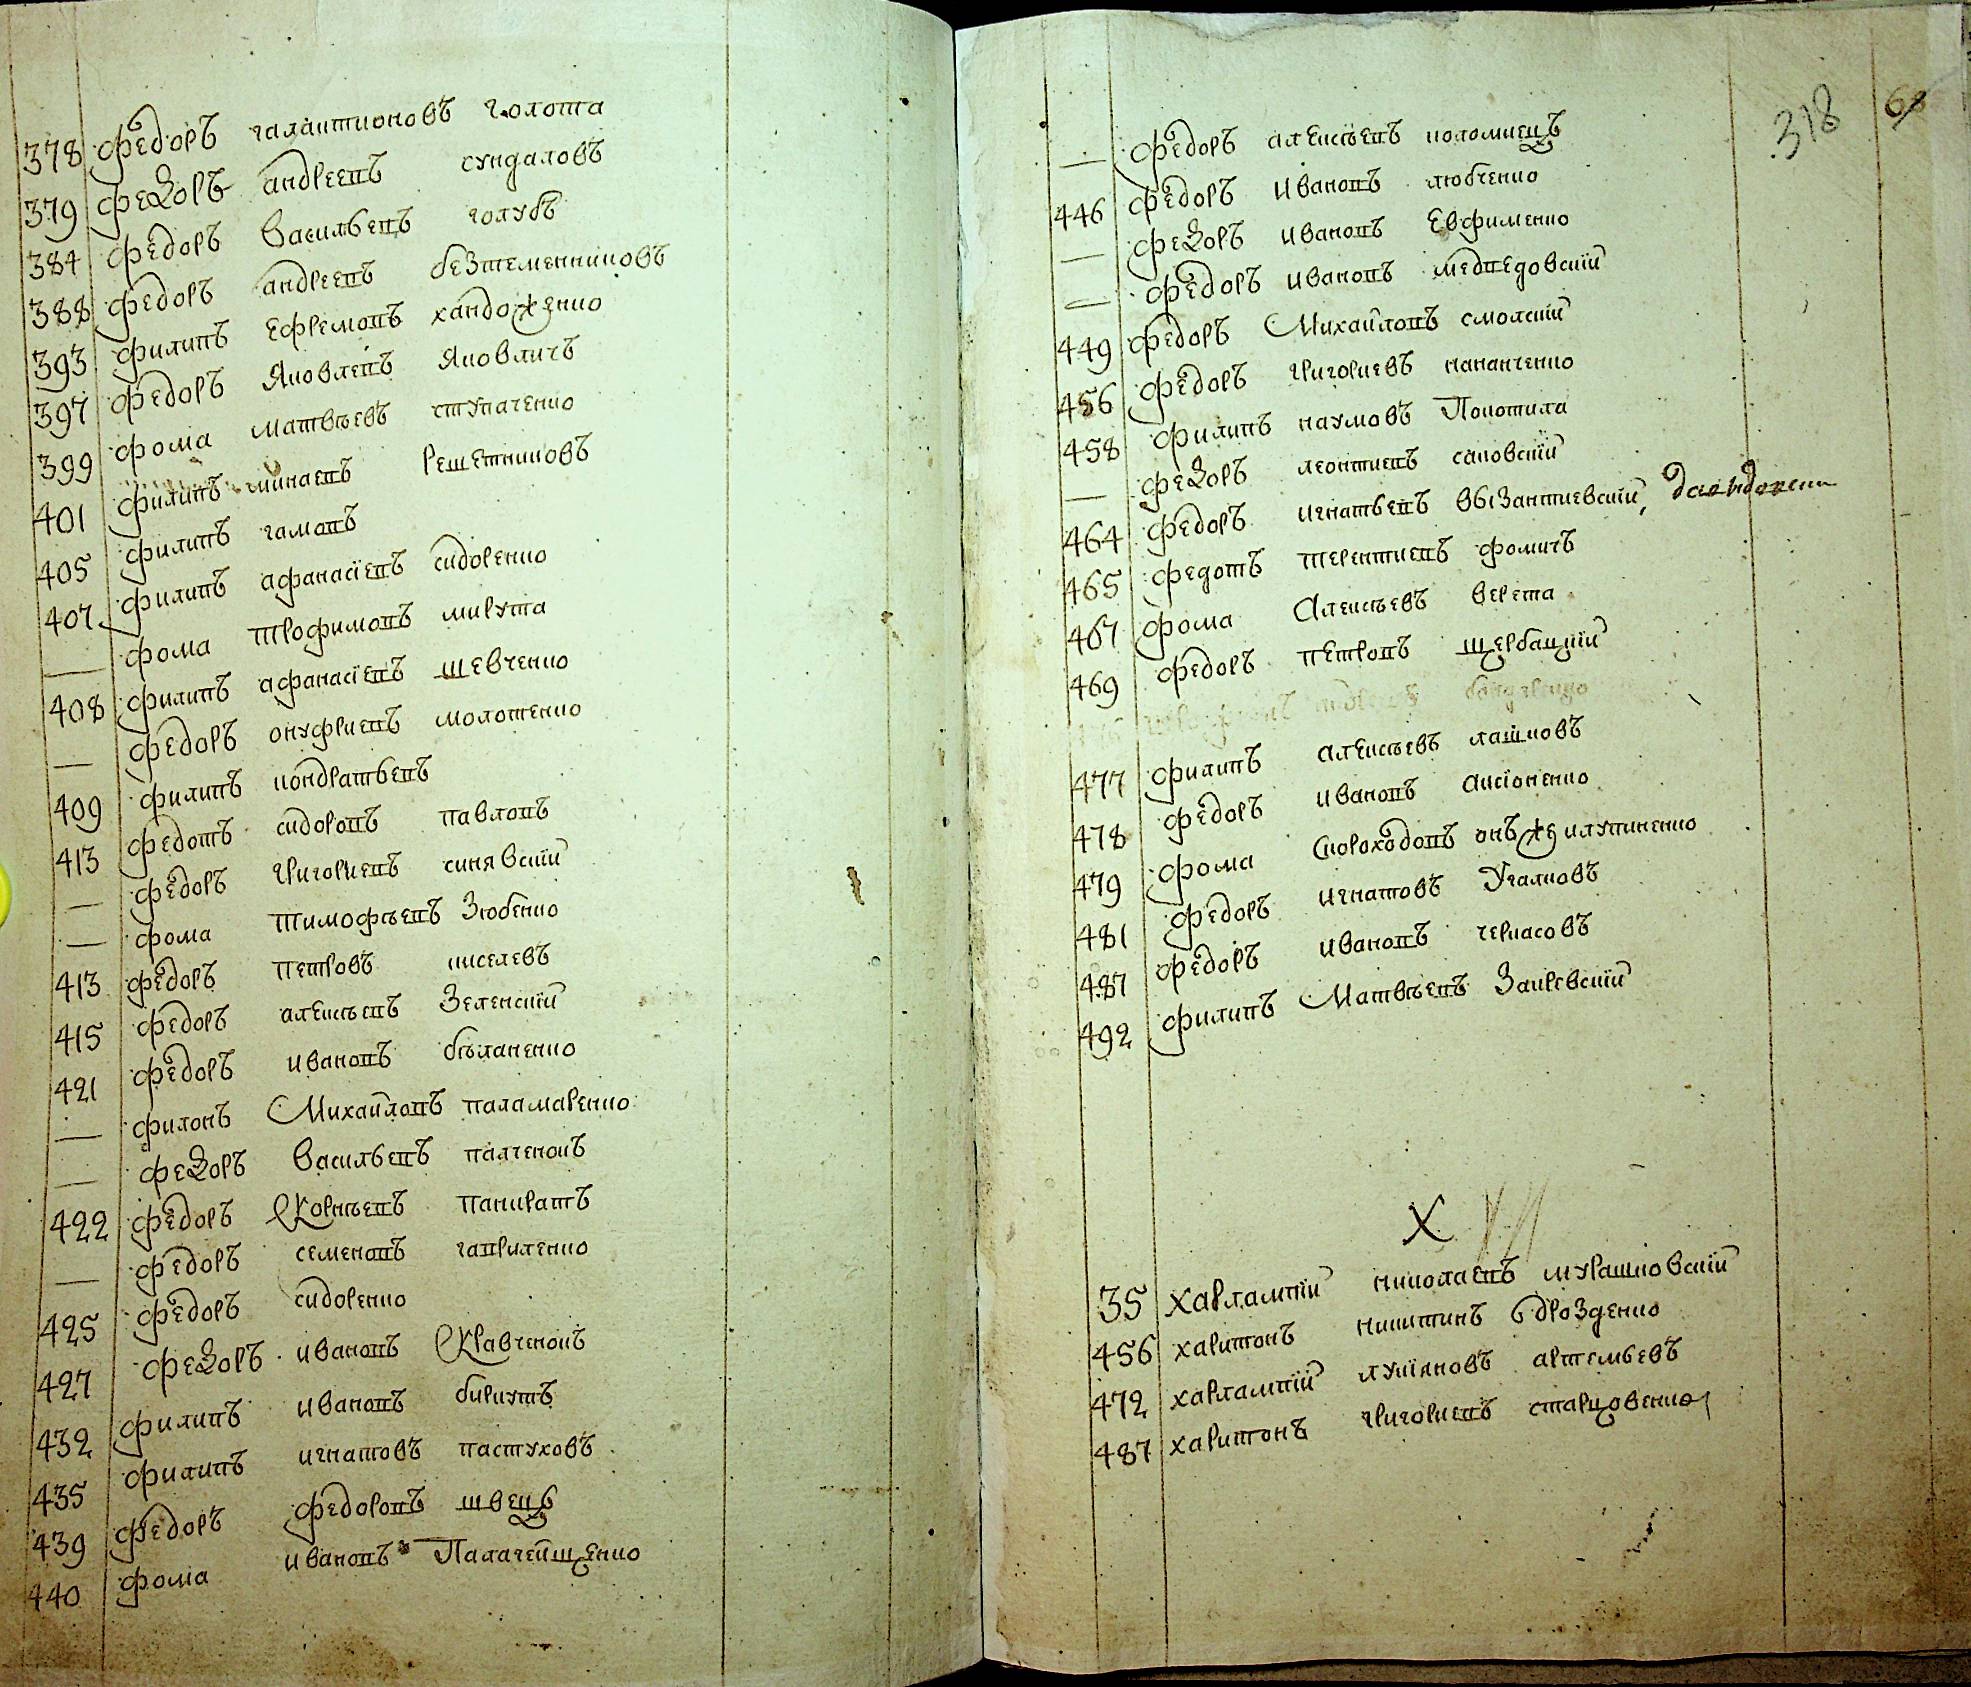 378 федоръ галактионовъ голота
379 федоръ андреевъ сундаловъ
384 федоръ Васильевъ голубъ
388 федоръ андреевъ безтеменниковъ
393 филипъ Ефремовъ хандоженко
397 федоръ Яковлевъ Яковличъ
399 фома матвѣевъ ступаченко
401 филипъ минаевъ Решетниковъ
405 филипъ гамовъ
407 филипъ афанасіевъ сидоренко
— фома трофимовъ микута
408 филипъ афанасіевъ шевченко
— федоръ онуфриевъ молотенко
409 филипъ кондратьевъ
413 федотъ сидоровъ павловъ
— федоръ григориевъ синявскій
— фома тимофѣевъ Зюбенко
413 федоръ петровъ киселевъ
415 федоръ алексѣевъ Зеленскій
421 федоръ ивановъ бѣланенко
— филонъ Михайловъ паламаренко
— федоръ Васильевъ палченокъ
422 федоръ Корнѣевъ панкратъ
— федоръ семеновъ гавриленко
425 федоръ сидоренко
427 федоръ ивановъ Кравченокъ
432 филипъ ивановъ биркутъ
435 филипъ игнатовъ пастуховъ
439 федоръ федоровъ швецъ
440 фома ивановъ Палагейщенко
318
— федоръ алексѣевъ коломиецъ
446 федоръ Ивановъ любченко
— федоръ ивановъ Евфименко
— федоръ ивановъ медведовскій
449 федоръ Михайловъ смолскій
456 федоръ григориевъ каканченко
458 филипъ наумовъ Покотила
— федоръ леонтиевъ саковскій
464 федоръ игнатьевъ Византиевскій,
465 федотъ терентиевъ фомичъ
467 фома Алексѣевъ верета
469 федоръ петровъ щербацкій
477 филипъ алексѣевъ лашковъ
478 федоръ ивановъ аксіоненко
479 фома Скороходовъ онъ же илупиненко
481 федоръ игнатовъ Угалковъ
487 федоръ ивановъ черкасовъ
492 филипъ Матвѣевъ Закревскій
Х
35 харлампій николаевъ мурашковскій
456 харитонъ никитинъ дрозденко
472 харлампій лукіяновъ артемьевъ
487 харитонъ григориевъ старцовенко